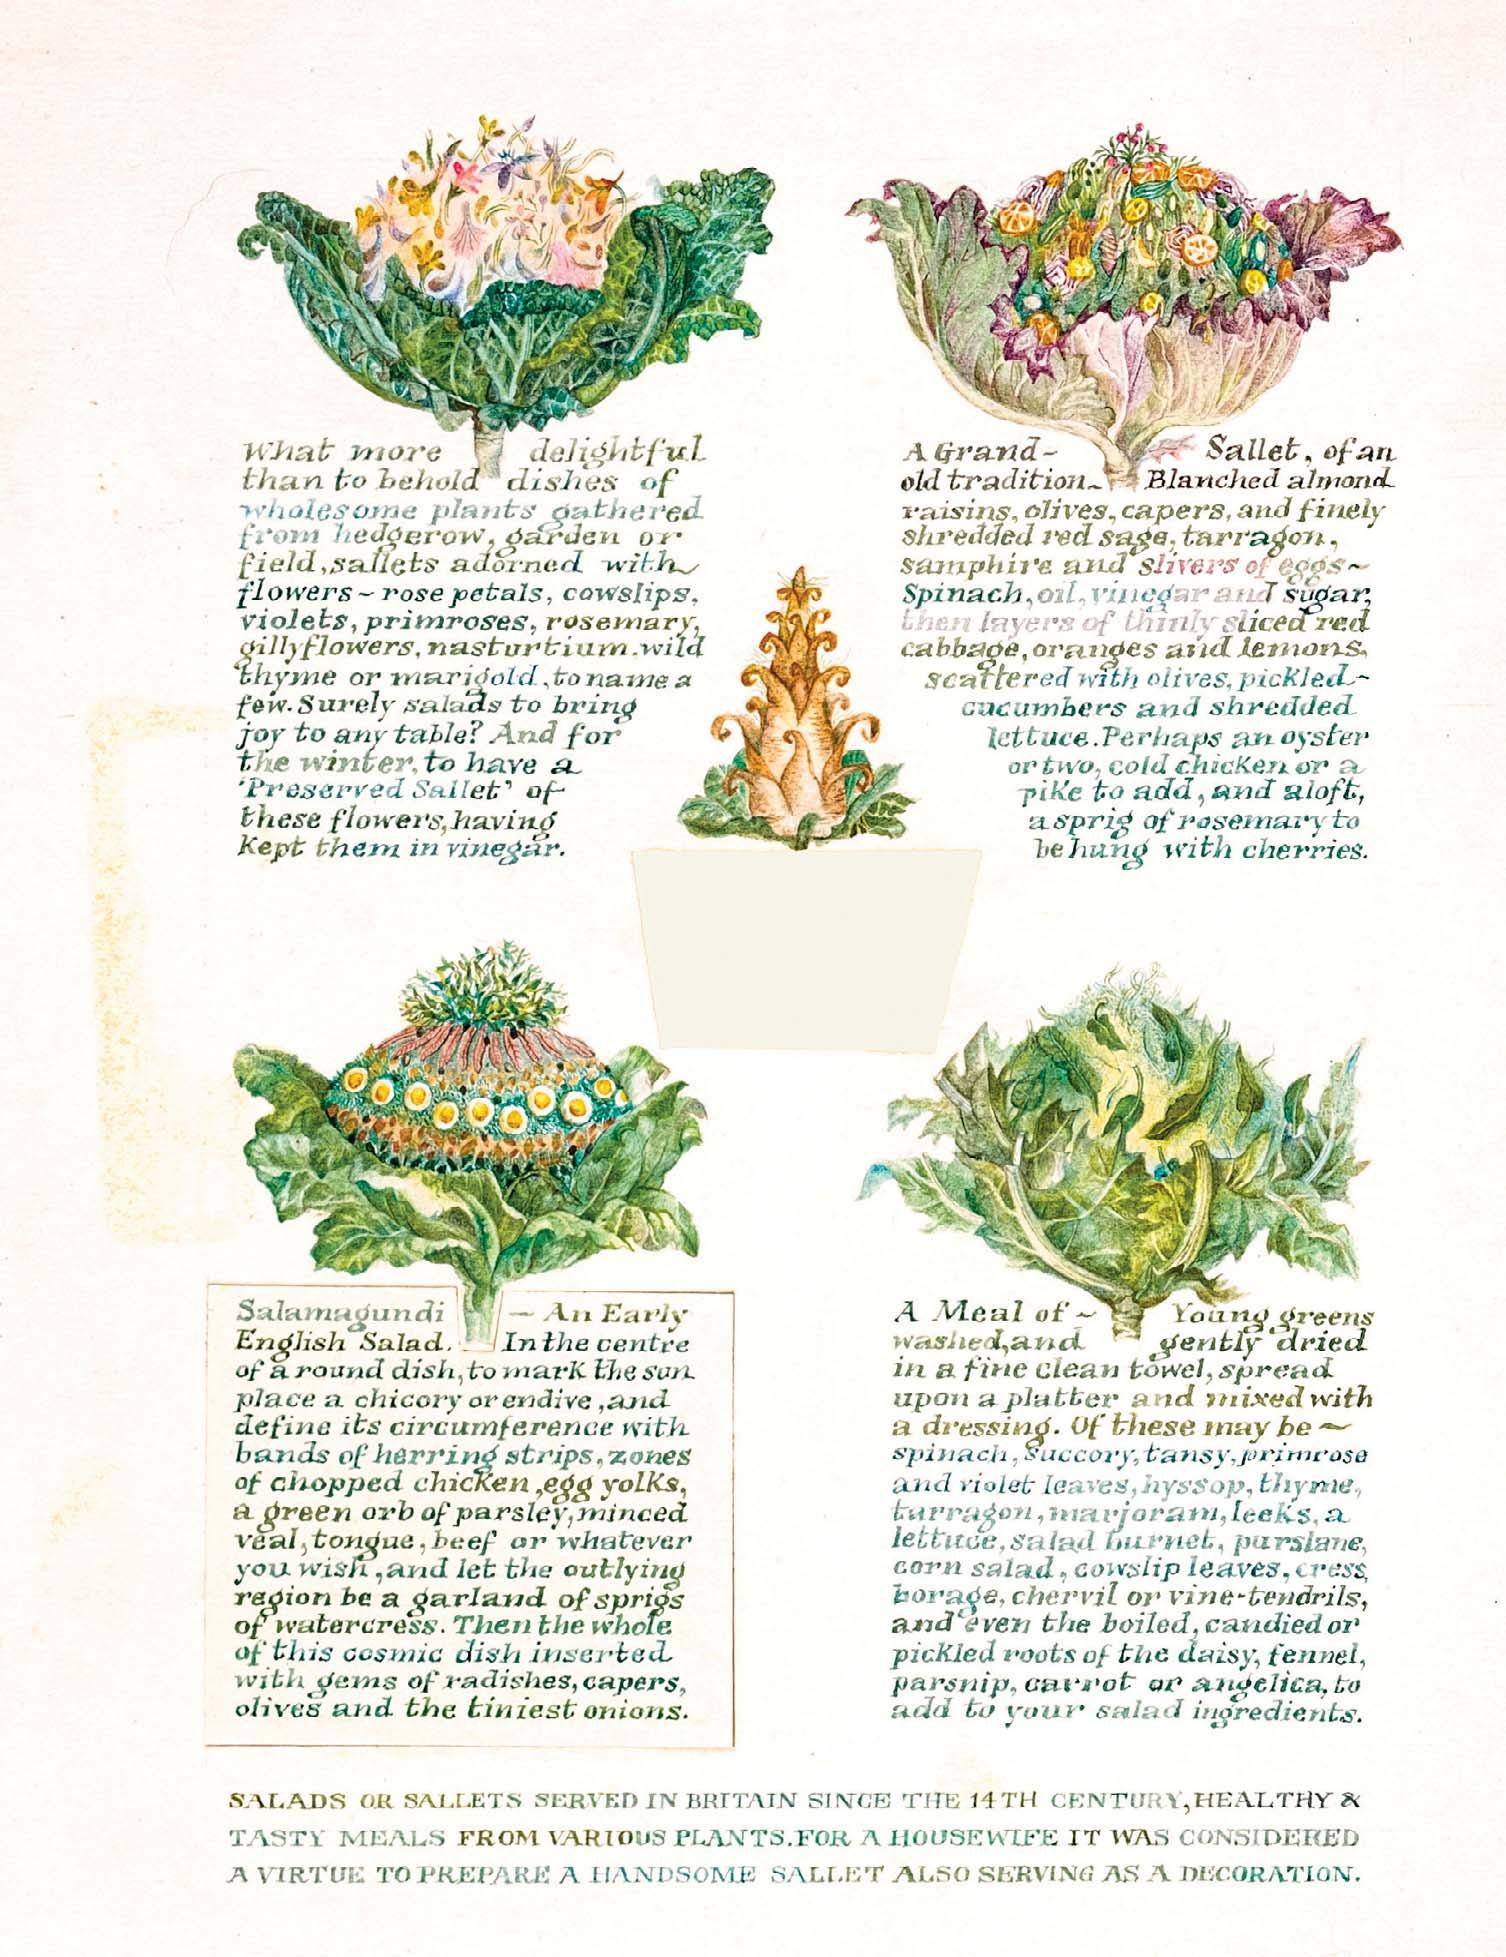 What more delightful
than to behold dishes of
wholesome plants gathered
from hedgerow, garden or
field, sallets adorned with
flowers ~ rose petals, cowslips,
violets, primroses, rosemary,
gillyflowers, nasturtium, wild
thyme or marigold, to name a
few. Surely salads to bring
joy to any table? And for
the winter, to have a
'Preserved Sallet' of
these flowers, having
kept them in vinegar.
A Grand ~ Sallet, of an
old tradition ~ Blanched almond
raisins, olives, capers, and finely
shredded red sage, tarragon,
samphire and slivers of eggs ~
Spinach, oil, vinegar and sugar,
then layers of thinly sliced red
cabbage, oranges and lemons,
scattered with olives, pickled ~
cucumbers and shredded
lettuce. Perhaps an oyster
or two, cold chicken or a
pike to add, and aloft,
a sprig of rosemary to
be hung with cherries.
Salamagundi ~ An Early
English Salad. In the centre
of a round dish, to mark the sun
place a chicory or endive, and
define its circumference with
bands of herring strips, zones
of chopped chicken, egg yolks,
a green orb of parsley, minced
veal, tongue, beef or whatever
you wish, and let the outlying
region be a garland of sprigs
of watercress. Then the whole
of this cosmic dish inserted
with gems of radishes, capers,
olives and the tiniest onions.
A Meal of ~ Young greens
washed, and gently dried
in a fine clean towel, spread
upon a platter and mixed with
a dressing. Of these may be ~
spinach, succory, tansy, primrose
and violet leaves, hyssop, thyme,
tarragon, marjoram, leeks, a
lettuce, salad burnet, purslane,
corn salad, cowslip leaves, cress,
borage, chervil or vine-tendrils,
and even the boiled, candied or
pickled roots of the daisy, fennel,
parsnip, carrot or angelica, to
add to your salad ingredients.
SALADS OR SALLETS SERVED IN BRITAIN SINCE THE 14TH CENTURY, HEALTHY &
TASTY MEALS FROM VARIOUS PLANTS. FOR A HOUSEWIFE IT WAS CONSIDERED
A VIRTUE TO PREPARE A HANDSOME SALLET ALSO SERVING AS A DECORATION.